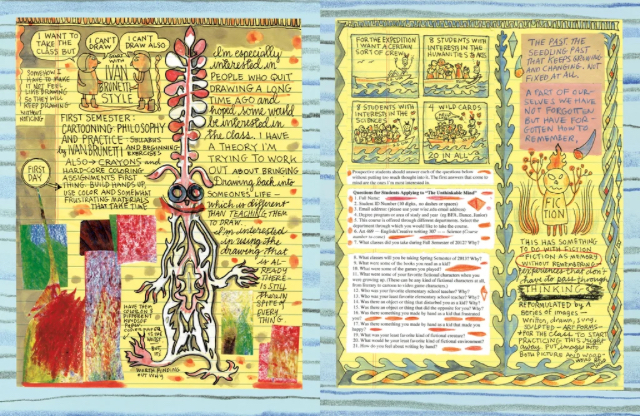 I WANT TO
TAKE THE
CLASS BUT
I CAN'T
DRAW
I CAN'T
DRAW ALSO
START WITH
IVAN
BRUNETTI
STYLE
SOMEHOW I
HAVE TO MAKE
IT NOT FEEL
LIKE DRAWING
SO THEY WILL
KEEP DRAWING
WITHOUT
NOTICING
FIRST SEMESTER:
CARTOONING PHILOSOPHY
AND PRACTICE - SYLLABUS
by IVAN BRUNETTI AND BEGINNING
EXERCISES
ALSO → CRAYONS and
HARD-CORE COLORING
ASSIGNMENTS FIRST
THING. BUILD HANDS UP,
USE COLOR AND SOMEWHAT
FRUSTRATING MATERIALS
THAT TAKE TIME
FIRST
DAY
I'm especially
interested in
PEOPLE WHO QUIT
DRAWING A LONG
TIME AGO and
hoped some would
be interested in
the class. I HAVE
A THEORY I'M
TRYING TO WORK
OUT ABOUT BRINGING
Drawing back into
SOMEONE'S LIFE -
which is different
THAN TEACHING THEM
TO DRAW
I'm interested
in using the
drawing that
is AL-
READY
THERE -
IS STILL
There IN
SPITE of
EVERY
THING
HAVE THEM
WORTH FINDING
OUT WHY
FOR THE EXPEDITION
I WANT A CERTAIN
SORT OF CREW
8 STUDENTS WITH
INTERESTS IN THE
HUMANITIES & ARTS
8 STUDENTS WITH
INTERESTS IN THE
SCIENCES
4 WILD CARDS
20 IN ALL
Prospective students should answer each of the questions below
without putting too much thought into it. The first answers that come to
mind are the ones I'm most interested in.
Questions for Students Applying to "The Unthinkable Mind"
1. Full Name:
2. Student ID Number (10 digits, no dashes or spaces)
3. Email address (please use your wisc.edu email address)
4. Degree program or area of study and year (eg BFA, Dance, Junior)
5. This course is offered through different departments. Select the
department through which you would like to take the course.
6. Art 469 - English/Creative writing 307 -
7. What classes did you take during Fall Semester of 2012? Why?
8. What classes will you be taking Spring Semester of 2013? Why?
9. What were some of the books you read as a kid?
10. What were some of the games you played?
11. What were some of your favorite fictional characters when you were
growing up. (These can be any kind of fictional characters at all,
from literary to cartoon to video game characters.)
12. Who was your favorite elementary school teacher? Why?
13. Who was your least favorite elementary school teacher? Why?
14. Was there an object or thing that disturbed you as a kid? Why?
15. Was there an object or thing that did the opposite for you? Why?
16. Was there something you made by hand as a kid that frustrated
you?
17. Was there something you made by hand as a kid that made you
18. What was your favorite kind of fictional environment?
19. What was your least favorite kind of fictional environment?
20. What would be your least favorite kind of fictional environment?
21. How do you feel about writing by hand?
THE PAST. THE
SEEDLING PAST
THAT KEEPS GROWING
AND CHANGING. NOT
FIXED AT ALL.
A PART OF OUR-
SELVES WE HAVE
NOT FORGOTTEN
BUT HAVE FOR-
GOTTEN HOW TO
REMEMBER.
FICTION
THIS HAS SOMETHING
TO DO WITH FICTION
FICTION AS MEMORY
experiences that don't
have to pass through
THINKING
REFORMULATED BY A
SERIES OF IMAGES -
written, drawn, sung,
SCULPTED - ART FORMS -
FOR THE CLASS TO START
PRACTICING THIS right
away. PUT images into
BOTH PICTURE AND WORD